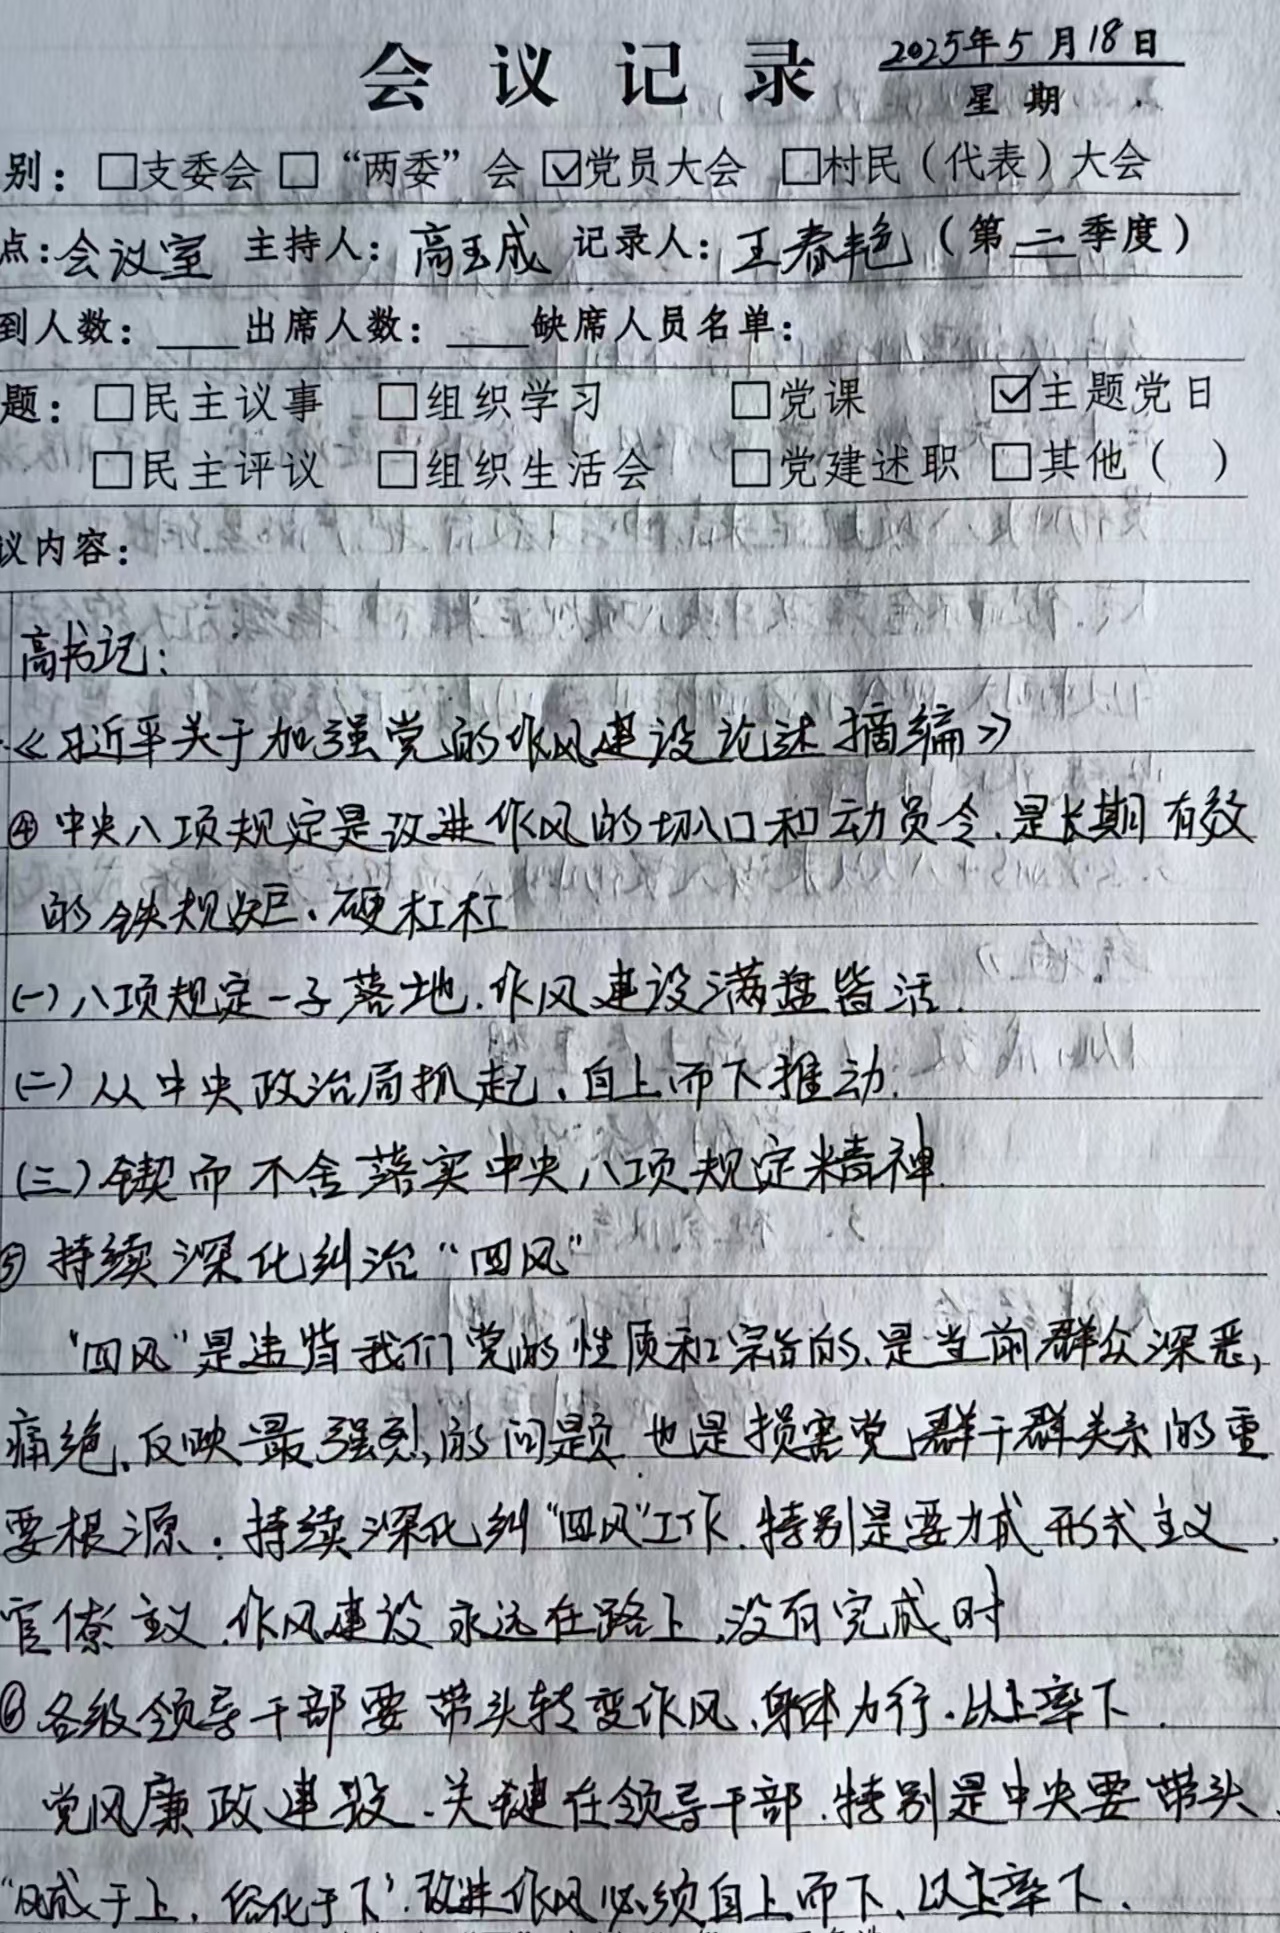 会议记录 2025年5月18日
星期
别：□支委会 □“两委”会 ☑党员大会 □村民（代表）大会
点：会议室 主持人：高玉成 记录人：王春艳（第二季度）
到人数：____出席人数：____缺席人员名单：
题：□民主议事 □组织学习 □党课 ☑主题党日
□民主评议 □组织生活会 □党建述职 □其他（ ）
议内容：
高书记：
《习近平关于加强党的作风建设论述摘编》
④中央八项规定是改进作风的切入口和动员令、是长期有效
的铁规矩、硬杠杠
(一)八项规定一子落地，作风建设满盘皆活.
(二)从中央政治局抓起、自上而下推动.
(三)锲而不舍落实中央八项规定精神.
⑤持续深化纠治“四风”
“四风”是违背我们党的性质和宗旨的、是当前群众深恶，
痛绝、反映最强烈的问题、也是损害党群干群关系的重
要根源：持续深化纠“四风”工作、特别是要力戒形式主义、
官僚主义、作风建设永远在路上，没有完成时
⑥各级领导干部要带头转变作风、身体力行、以上率下.
党风廉政建设、关键在领导干部、特别是中央要带头、
“风成于上，俗化于下”改进作风必须自上而下、以上率下、